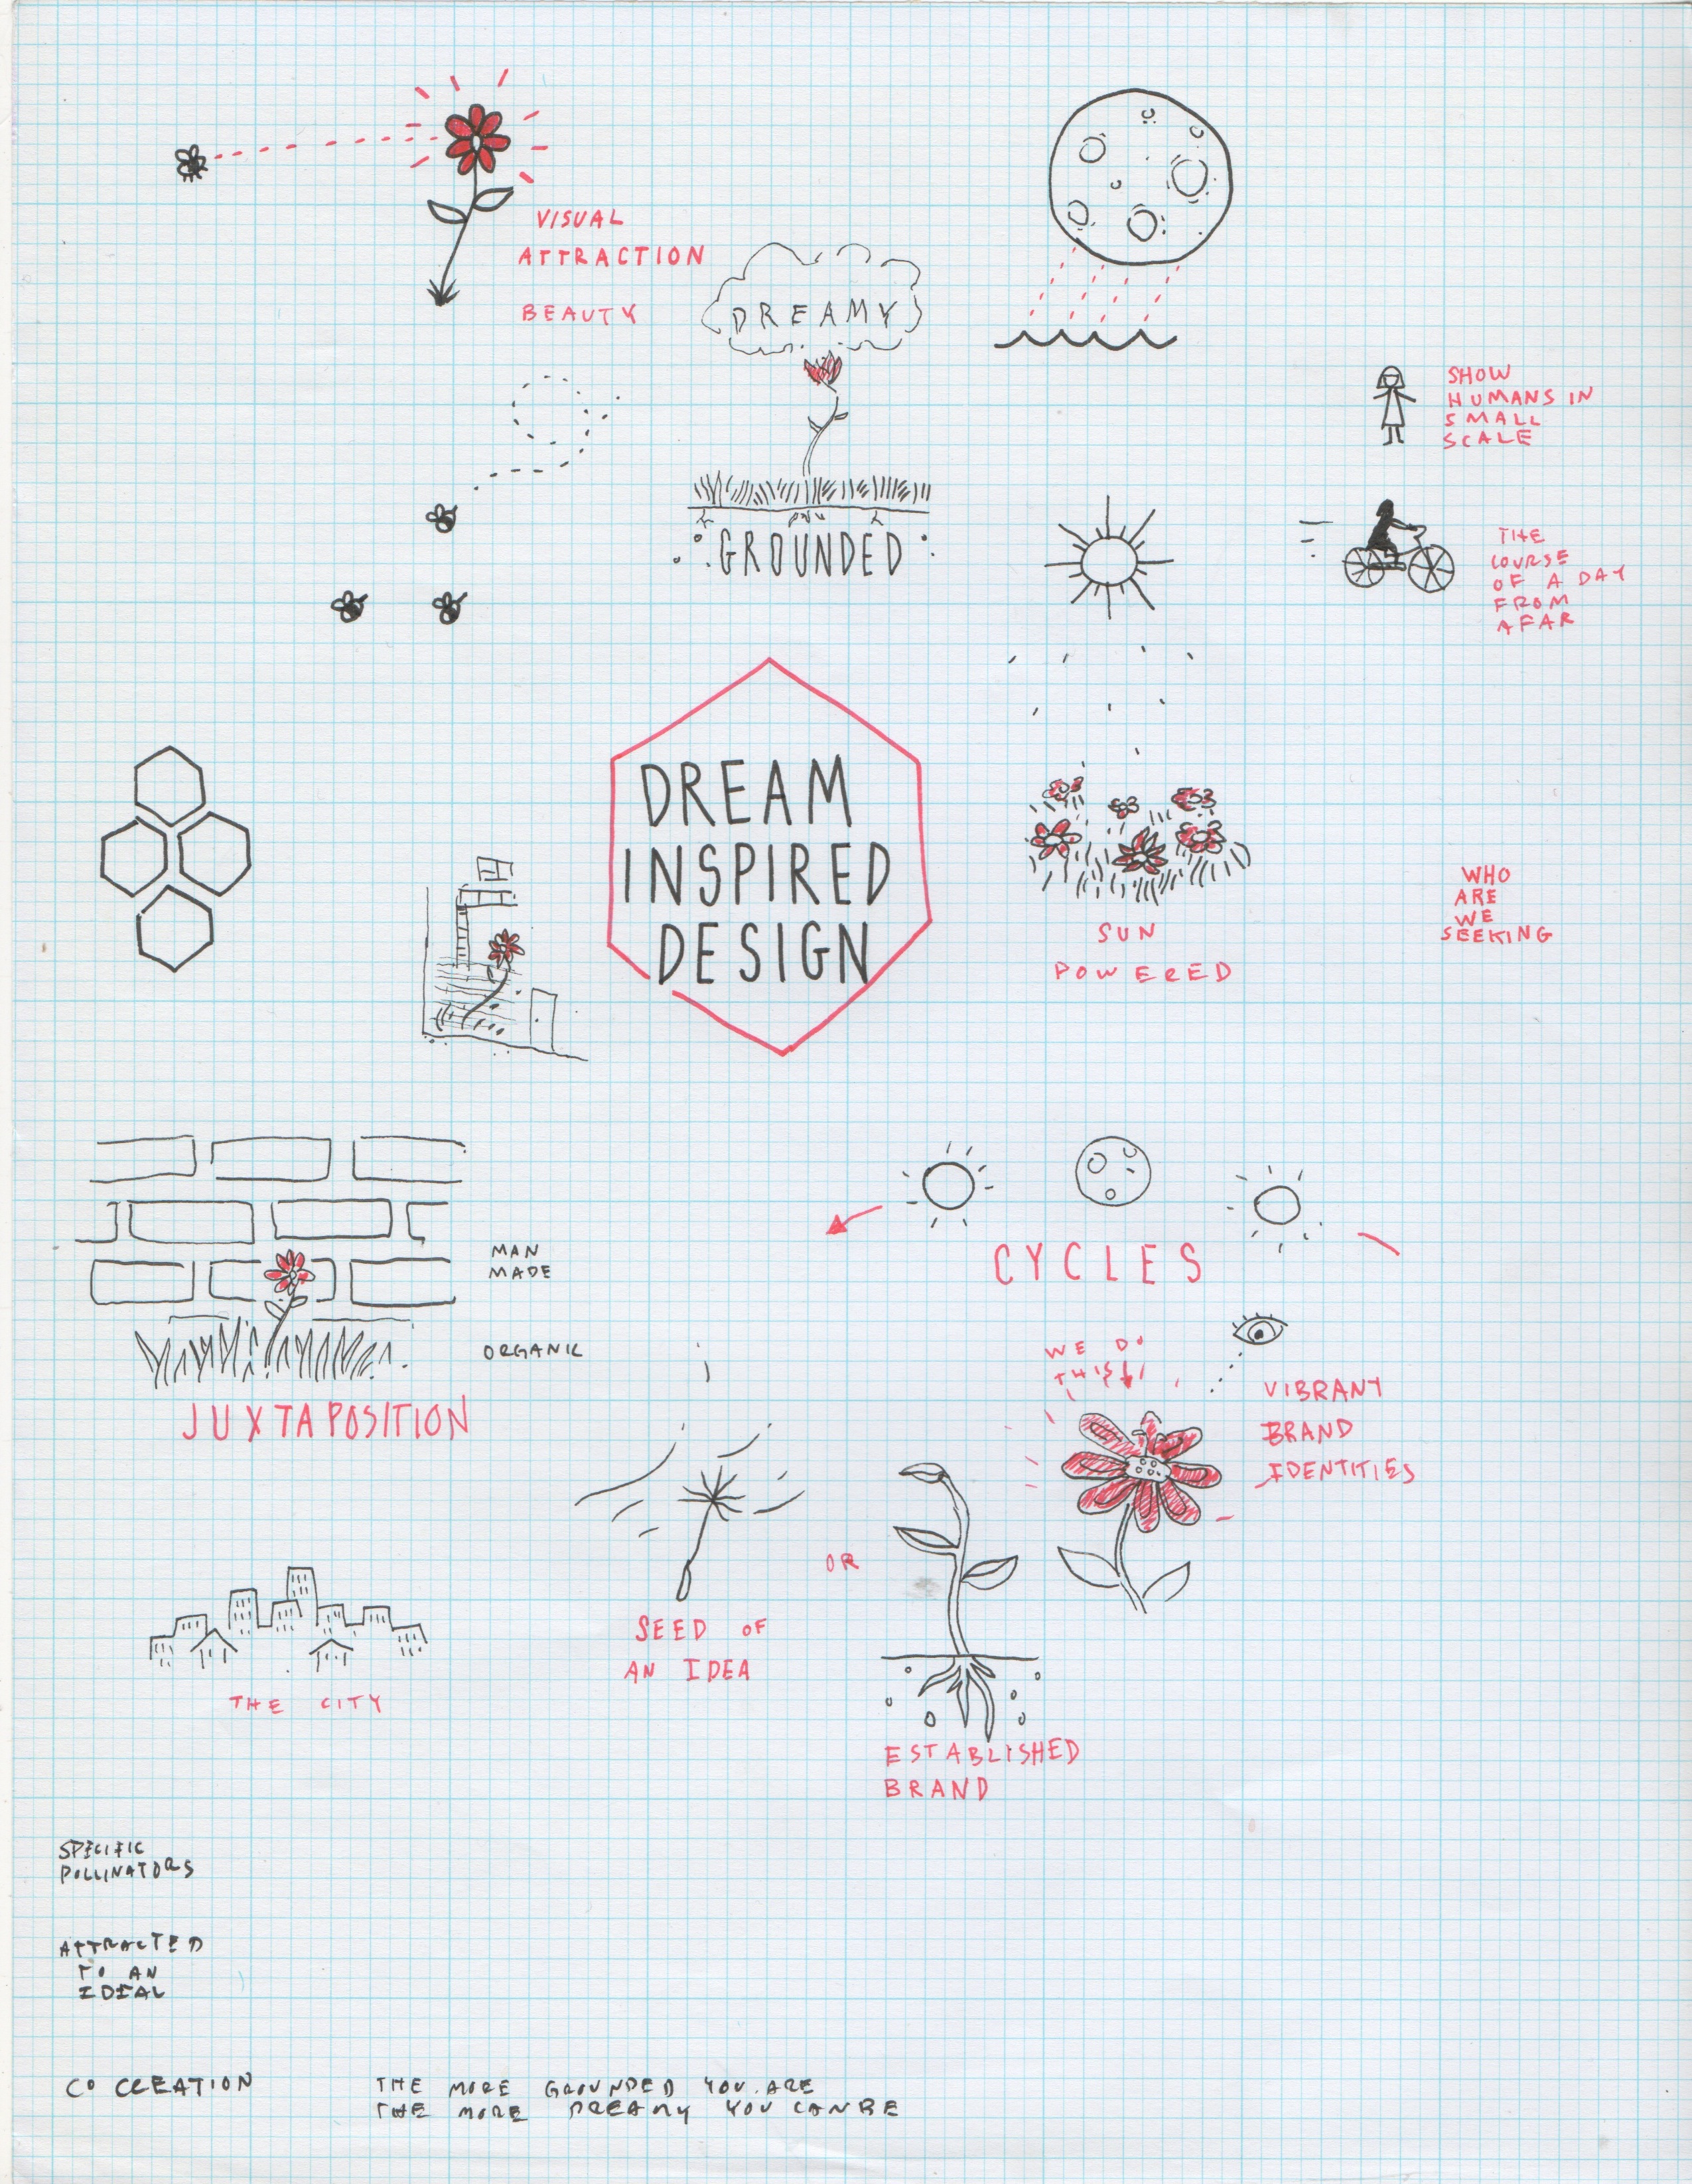 VISUAL
ATTRACTION
BEAUTY
DREAMY
GROUNDED
SHOW
HUMANS IN
SMALL
SCALE
THE
COURSE
OF A DAY
FROM
AFAR
DREAM
INSPIRED
DESIGN
SUN
POWERED
WHO
ARE
WE
SEEKING
MAN
MADE
ORGANIC
JUXTAPOSITION
CYCLES
WE DO
THIS!
VIBRANT
BRAND
IDENTITIES
OR
SEED OF
AN IDEA
THE CITY
ESTABLISHED
BRAND
SPECIFIC
POLLINATORS
ATTRACTED
TO AN
IDEAL
CO CREATION
THE MORE GROUNDED YOU ARE
THE MORE DREAMY YOU CAN BE